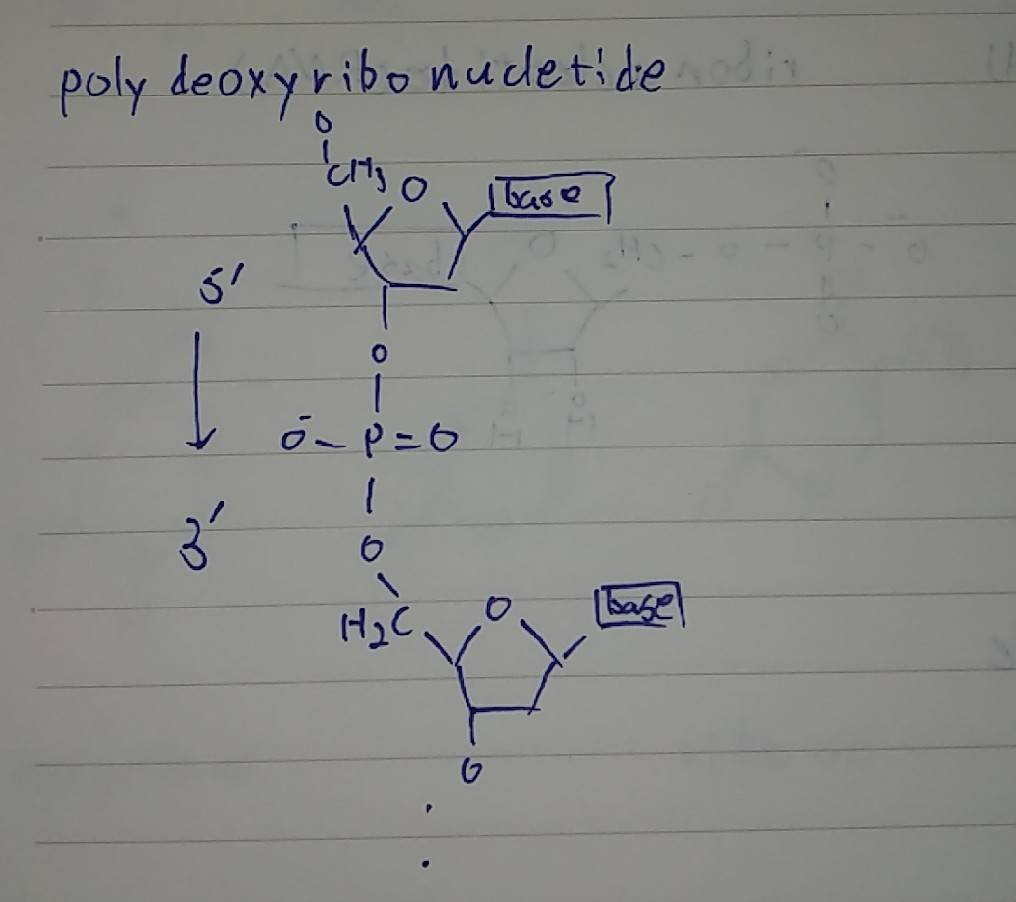 poly deoxyribo nucletide
O
CH3 O base
5'
O
O- P=O
3'
O
H2C O base
O